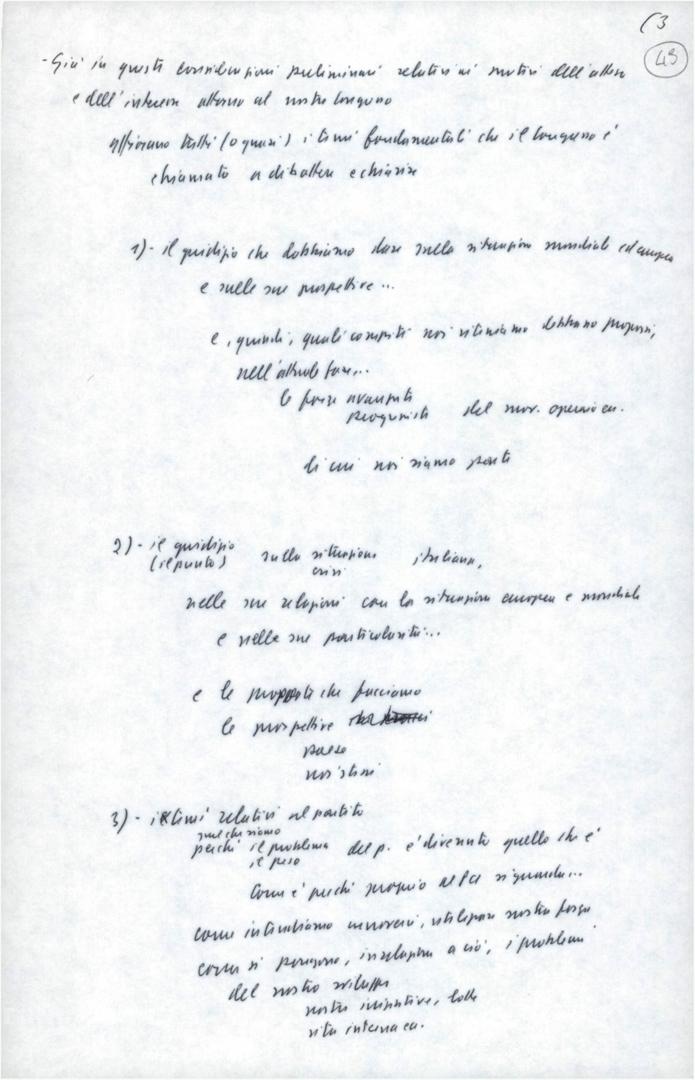 (3
43
- Già in queste considerazioni preliminari relative ai motivi dell'attesa
e dell'interesse attorno al nostro congresso
affiorano tutti (o quasi) i temi fondamentali che il congresso è
chiamato a dibattere e chiarire
1) - il giudizio che dobbiamo dare sulla situazione mondiale ed europea
e sulle sue prospettive...
e, quindi, quali compiti noi riteniamo debbano proporsi,
nell'attuale fase...
le forze avanzate
progressiste del mov. operaio eu.
di cui noi siamo parte
2) - il giudizio
(il punto) sulla situazione italiana,
crisi
nelle sue relazioni con la situazione europea e mondiale
e nelle sue particolarità...
e le proposte che facciamo
le prospettive
paese
noi stessi
3) - i temi relativi al partito
quel che siamo
perché il problema del p. è divenuto quello che è
il peso
Com'è perché proprio al PCI si guarda...
come intendiamo muoverci, utilizzare nostra forza
come si pongono, in relazione a ciò, i problemi
del nostro sviluppo
nostre iniziative, lotte
vita interna ecc.